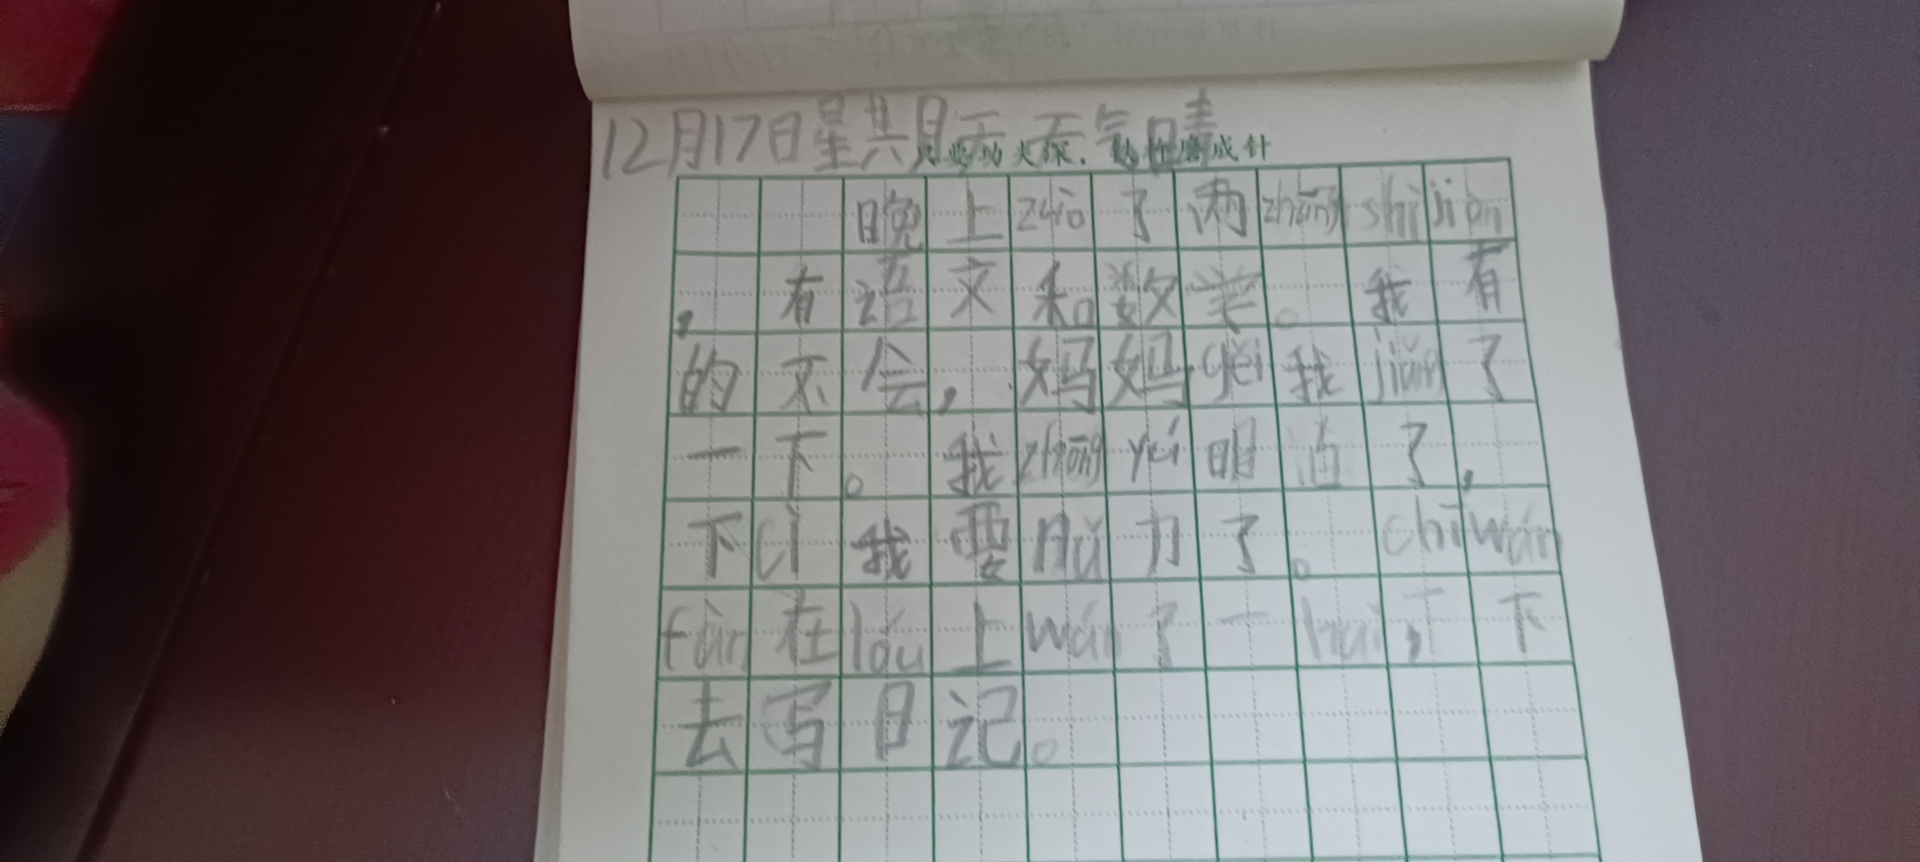 12月17日星期天 天气晴
只要功夫深，铁杵磨成针
晚上zuò了两zhāng shì jiàn
，有语文和数学。我有
的不会，妈妈gěi我jiǎng了
一下。我zhōng yú明白了，
下cì我要nǔ力了。chī wán
fàn在lóu上wán了一huì，下
去写日记。